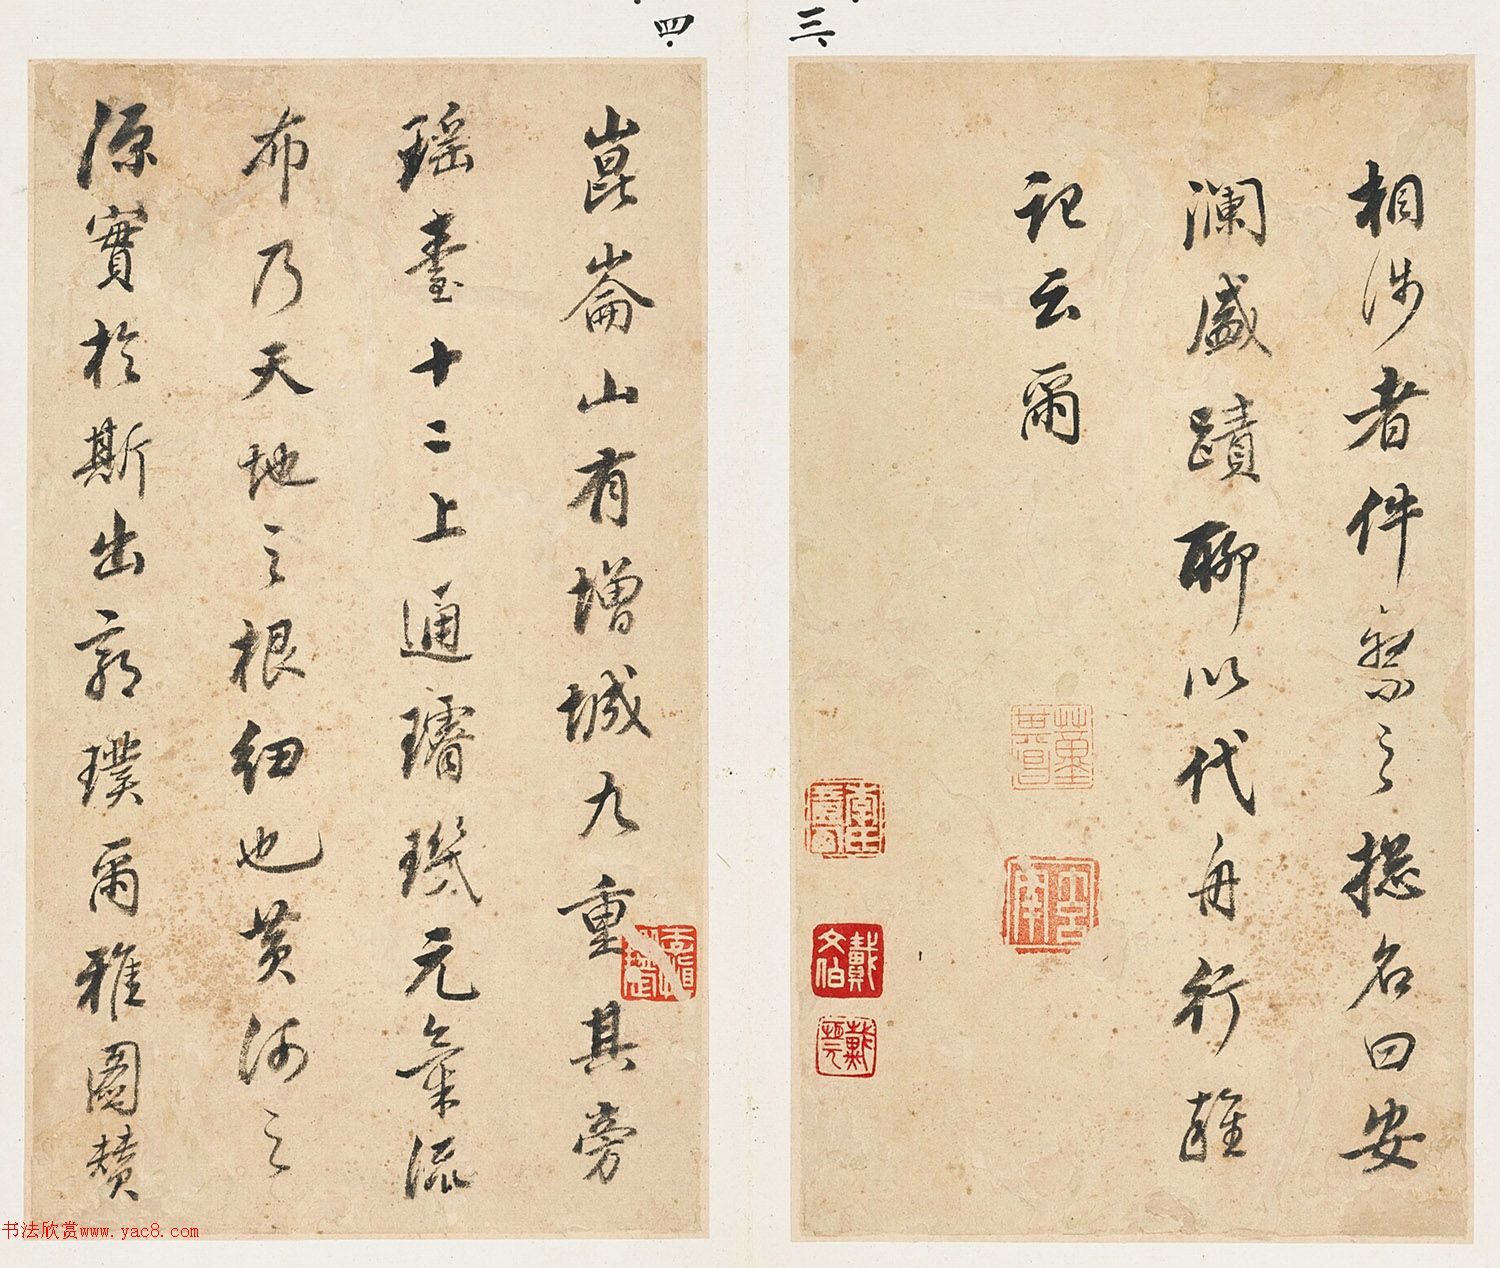 三
相涉者件繫之揔名曰安
瀾盛蹟聊以代舟行雜
記云爾
戴
文伯
四
崑崙山有增城九重其旁
瑶臺十二上通璿璣元氣流
布乃天地之根紐也黄河之
源實於斯出郭璞爾雅圖贊
书法欣赏www.yac8.com